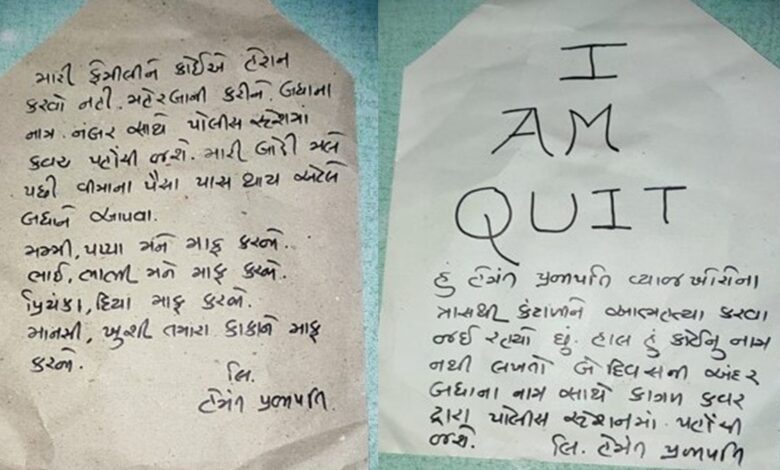 મારી ફેમીલીને કોઈએ હેરાન
કરવો નહી. મહેરબાની કરીને. બધાના
નામ. નંબર સાથે પોલીસ સ્ટેશનમાં
કવર પહોંચી જશે. મારી બોડી મલે
પછી વીમાના પૈસા પાસ થાય એટલે
બધાને આપવા.
મમ્મી, પપ્પા મને માફ કરજો.
ભાઈ, ભાભી મને માફ કરજો.
પ્રિયંકા, દિયા માફ કરજો.
માનસી, ખુશી તમારા કાકાને માફ
કરજો.
લિ.
હેમંત પ્રજાપતિ.
I
AM
QUIT
હું હેમંત પ્રજાપતિ વ્યાજ ખોરોના
ત્રાસથી કંટાળીને આત્મહત્યા કરવા
જઈ રહયો છું. હાલ હું કોઈનુ નામ
નથી લખતો બે દિવસની અંદર
બધાના નામ સાથે કાગળ કવર
દ્વારા પોલીસ સ્ટેશનમાં પહોંચી
જશે. લિ. હેમંત પ્રજાપતિ